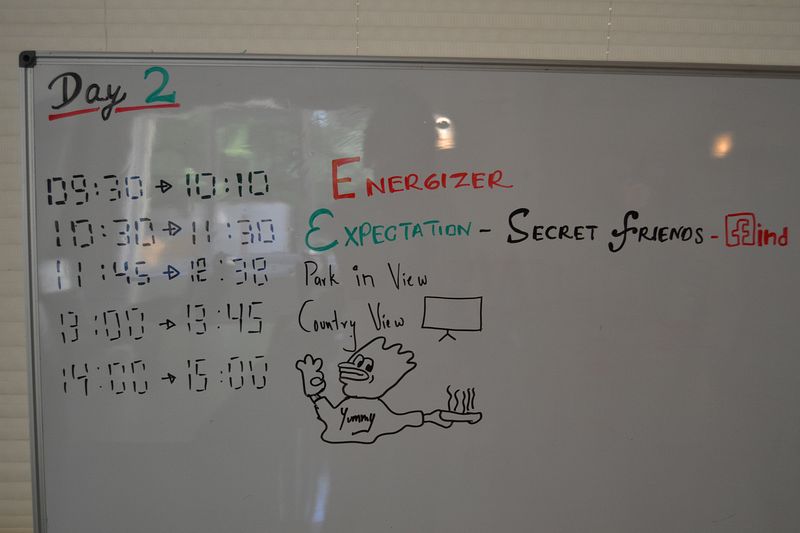 Day 2
09:30 → 10:10 ENERGIZER
10:30 → 11:30 EXPECTATION - SECRET FRIENDS - find
11:45 → 12:30 Park in View
13:00 → 13:45 Country View
14:00 → 15:00
Yummy